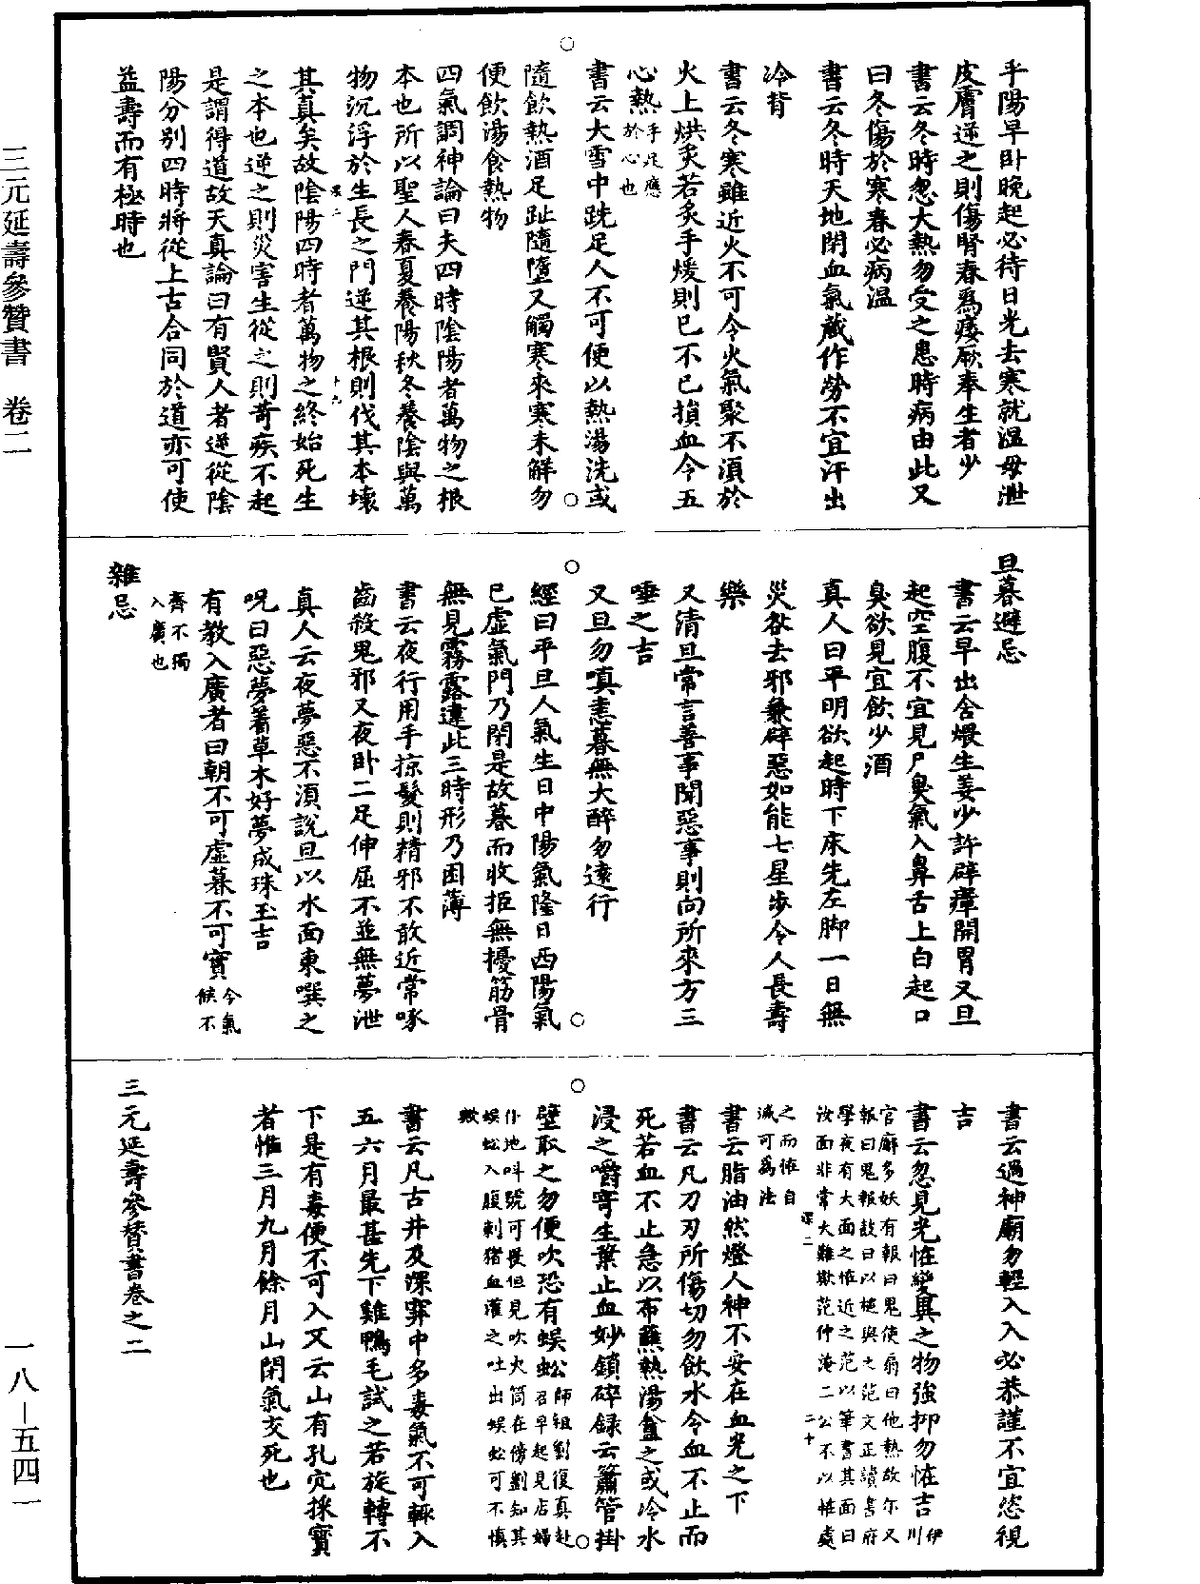 乎陽早卧晚起必待日光去寒就溫毋泄
皮膚逆之則傷腎春為痿厥奉生者少
書云冬時忽大熱勿受之患時病由此又
曰冬傷於寒春必病溫
書云冬時天地閉血氣藏作勞不宜汗出
冷背
書云冬寒雖近火不可令火氣聚不須於
火上烘炙若炙手煖則已不已損血令五
心熱手足應於心也
書云大雪中跣足人不可便以熱湯洗或
隨飲熱酒足趾隨墮又觸寒來寒未解勿
便飲湯食熱物
四氣調神論曰夫四時陰陽者萬物之根
本也所以聖人春夏養陽秋冬養陰與萬
物沉浮於生長之門逆其根則伐其本壞
其真矣故陰陽四時者萬物之終始死生
之本也逆之則災害生從之則苛疾不起
是謂得道故天真論曰有賢人者逆從陰
陽分別四時將從上古合同於道亦可使
益壽而有極時也
旦暮避忌
書云早出含煨生姜少許辟瘴開胃又旦
起空腹不宜見尸臭氣入鼻舌上白起口
臭欲見宜飲少酒
真人曰平明欲起時下床先左脚一日無
災咎去邪兼辟惡如能七星步令人長壽
樂
又清旦常言善事聞惡事則向所來方三
唾之吉
又旦勿嗔恚暮無大醉勿遠行
經曰平旦人氣生日中陽氣隆日西陽氣
已虛氣門乃閉是故暮而收拒無擾筋骨
無見霧露違此三時形乃困薄
書云夜行用手掠髮則精邪不敢近常啄
齒殺鬼邪又夜卧二足伸屈不並無夢泄
真人云夜夢惡不須說旦以水面東噀之
呪曰惡夢著草木好夢成珠玉吉
有教入廣者曰朝不可虛暮不可實今氣候不
齊不獨入廣也
雜忌
書云過神廟勿輕入入必恭謹不宜恣視
吉
書云忽見光恠變異之物強抑勿恠吉伊川
官廨多妖有報曰鬼使扇曰他熱故尔又
報曰鬼報鼓曰以槌與之范文正讀書府
學夜有大面之恠近之范以筆書其面曰
汝面非常大難欺范仲淹二公不以恠處
之而恠自
滅可為法
書云脂油然燈人神不安在血光之下
書云凡刀刃所傷切勿飲水令血不止而
死若血不止急以布蘸熱湯盦之或冷水
浸之嚼寄生葉止血妙鎖碎録云簫管掛
壁取之勿便吹恐有蜈蚣師祖劉復真赴召早起見店婦
仆地呌號可畏但見吹火筒在傍劉知其
蜈蚣入腹刺猪血灌之吐出蜈蚣可不慎
歟
書云凡古井及深穽中多毒氣不可輙入
五六月最甚先下雞鴨毛試之若旋轉不
下是有毒便不可入又云山有孔穴採寶
者惟三月九月餘月山閉氣交死也
三元延壽參贊書卷之二
三元延壽參贊書 卷二
一八－五四一